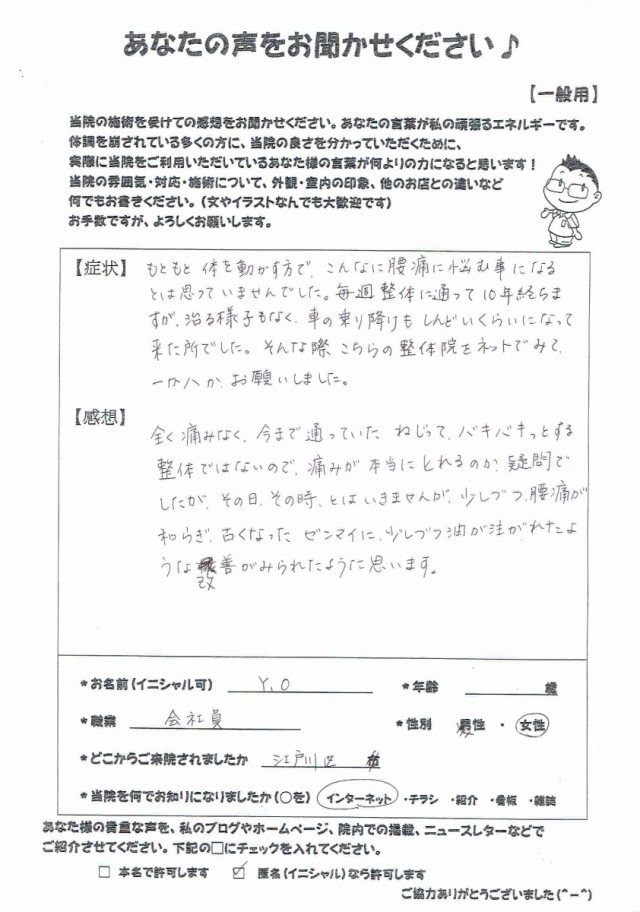 あなたの声をお聞かせください♪
【一般用】
当院の施術を受けての感想をお聞かせください。あなたの言葉が私の頑張るエネルギーです。
体調を崩されている多くの方に、当院の良さを分かっていただくために、
実際に当院をご利用いただいているあなた様の言葉が何よりの力になると思います！
当院の雰囲気・対応・施術について、外観・室内の印象、他のお店との違いなど
何でもお書きください。(文やイラストなんでも大歓迎です)
お手数ですが、よろしくお願いします。
【症状】 もともと体を動かす方で、こんなに腰痛に悩む事になる
とは思っていませんでした。毎週整体に通って10年経ちま
すが、治る様子もなく、車の乗り降けもしんどいくらいになって
来た所でした。そんな際、こちらの整体院をネットでみて、
一か八か、お願いしました。
【感想】
全く痛みなく、今まで通っていた ねじって、バキバキっとする
整体ではないので、痛みが本当にとれるのか、疑問で
したが、その日、その時、とはいきませんが、少しづつ、腰痛が
和らぎ、古くなった ゼンマイに、少しづつ油が注がれたよ
うな改善がみられたように思います。
＊お名前(イニシャル可) Y.O ＊年齢 歳
＊職業 会社員 ＊性別 男性 ・ 女性
＊どこからご来院されましたか 江戸川区
＊当院を何でお知りになりましたか(○を) インターネット ・チラシ ・紹介 ・看板 ・雑誌
あなた様の貴重な声を、私のブログやホームページ、院内での掲載、ニュースレターなどで
ご紹介させてください。下記の□にチェックを入れてください。
□ 本名で許可します ☑ 匿名(イニシャル)なら許可します
ご協力ありがとうございました(^-^)